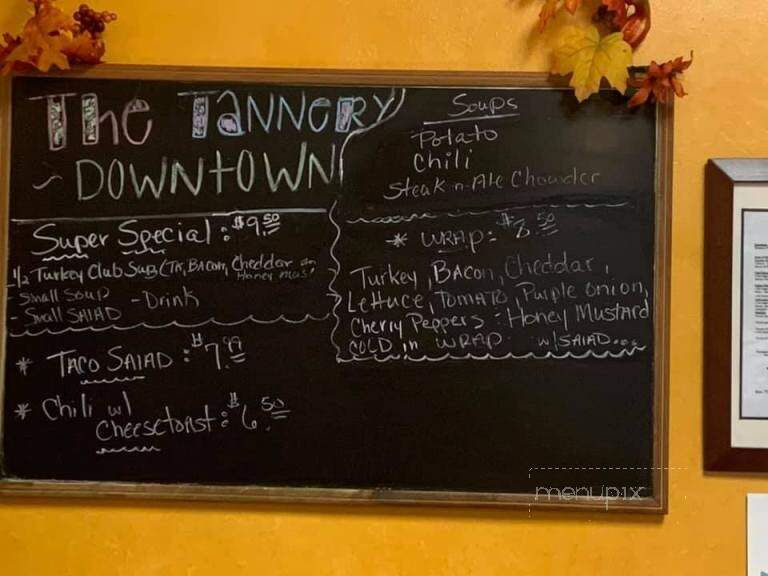 The TANNERY
~ DOWNTOWN
Super Special: $9.50
1/2 Turkey Club Sub (TK, Bacon, Cheddar on
Honey mus.
- Small Soup - Drink
- Small SALAD
* TACO SALAD: $7.99
* Chili w/
Cheesetoast: $6.50
Soups
Potato
Chili
Steak n Ale Chowder
* WRAP - $8.50
Turkey, BACON, Cheddar,
Lettuce, TOMATO, Purple onion,
Cherry Peppers : Honey Mustard
COLD in WRAP w/SALAD...
menupix